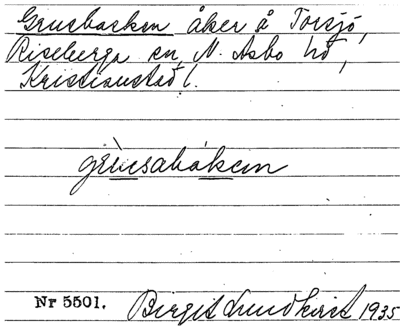 Grusbacken åker å Torsjö,
Riseberga sn, N. Åsbo hd,
Kristianstad l.
grùsabákɑn
Nr 5501. Birgit Lundkvist 1935